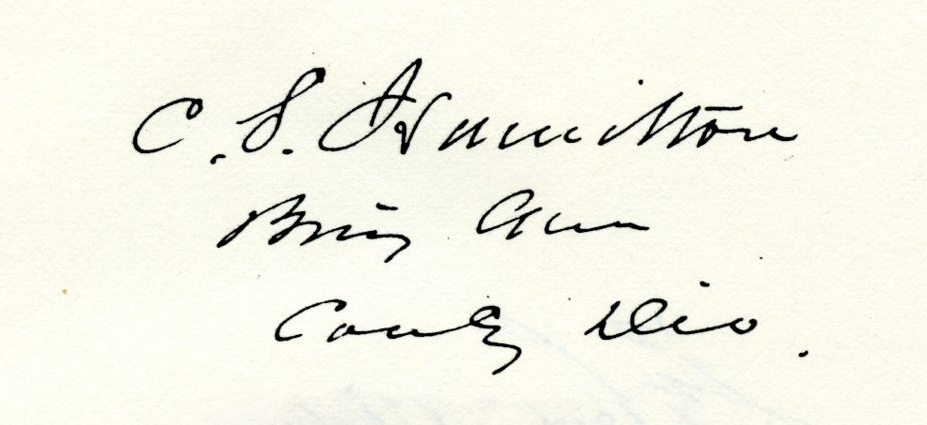 C. S. Hamilton
Brig Gen
Comdg Div.